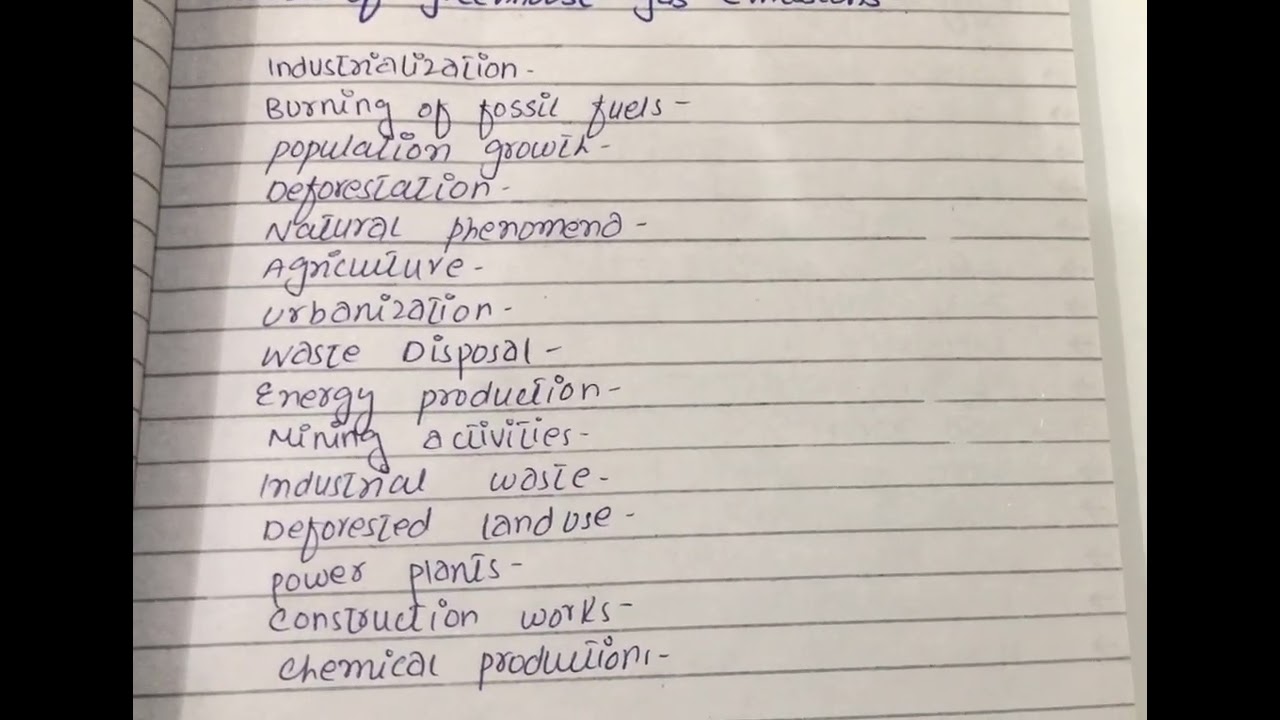 of greenhouse gas emissions
Industrialization -
Burning of fossil fuels -
population growth -
Deforestation -
Natural phenomena -
Agriculture -
Urbanization -
Waste Disposal -
Energy production -
Mining activities -
Industrial waste -
Deforested land use -
Power plants -
Construction works -
Chemical production -